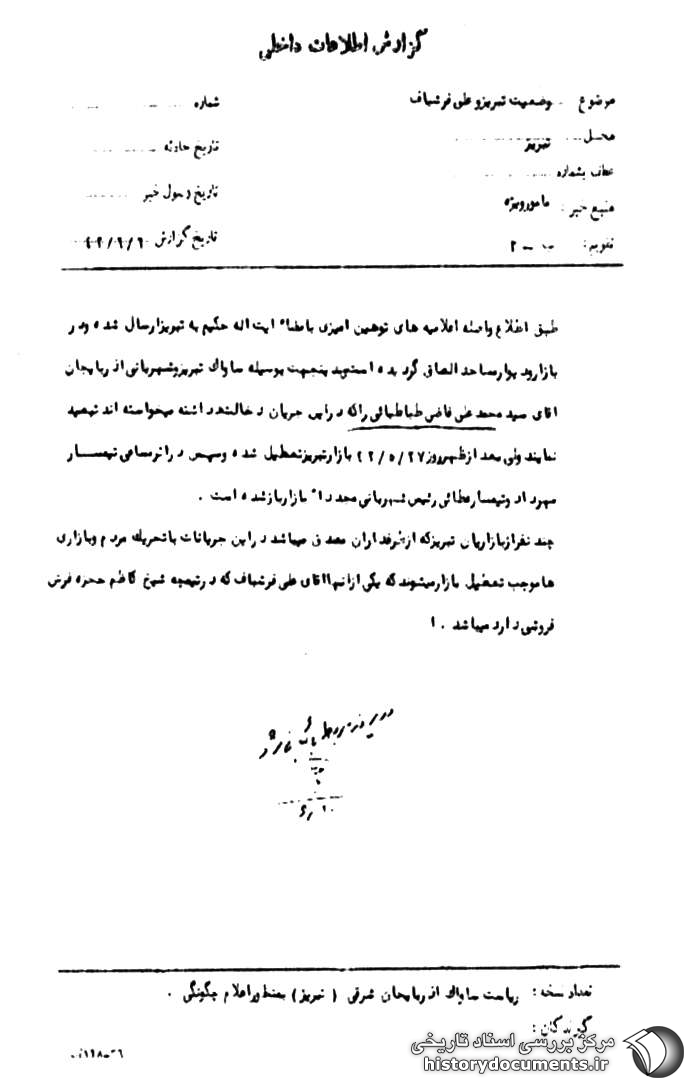 گزارش اطلاعات داخلی
موضوع وضعیت تبریز و علی فرشباف
محل تبریز
عطف بشماره
منبع خبر: مامور ویژه
تقویم:
شماره
تاریخ حادثه
تاریخ وصول خبر
تاریخ گزارش
طبق اطلاع واصله اعلامیه های توهین امیزی بامضاء ایت اله حکیم به تبریز ارسال شده و در
بازار و دیوار مساجد الصاق گردیده است بدینجهت بوسیله ساواک تبریز و شهربانی اذربایجان
اقای سید محمد علی قاضی طباطبائی را که در این جریان دخالت داشته میخواسته اند تبعید
نمایند ولی بعد از ظهر روز ۴۲/۵/۲۷ بازار تبریز تعطیل شده و سپس در اثر مساعی تیمسار
مهرداد و تیمسار عطائی رئیس شهربانی مجدداً بازار باز شده است .
چند نفر از بازاریان تبریز که از طرفداران مصدق میباشد در این جریانات با تحریک مردم و بازاری
ها موجب تعطیل بازار میشوند که یکی از انها اقای علی فرشباف که در تیمچه شیخ کاظم حجره فرش
فروشی دارد میباشد . ا
تعداد نسخه: ریاست ساواک اذربایجان شرقی ( تبریز ) بمنظور اعلام چگونگی .
گیرندگان:
مرکز بررسی اسناد تاریخی
historydocuments.ir